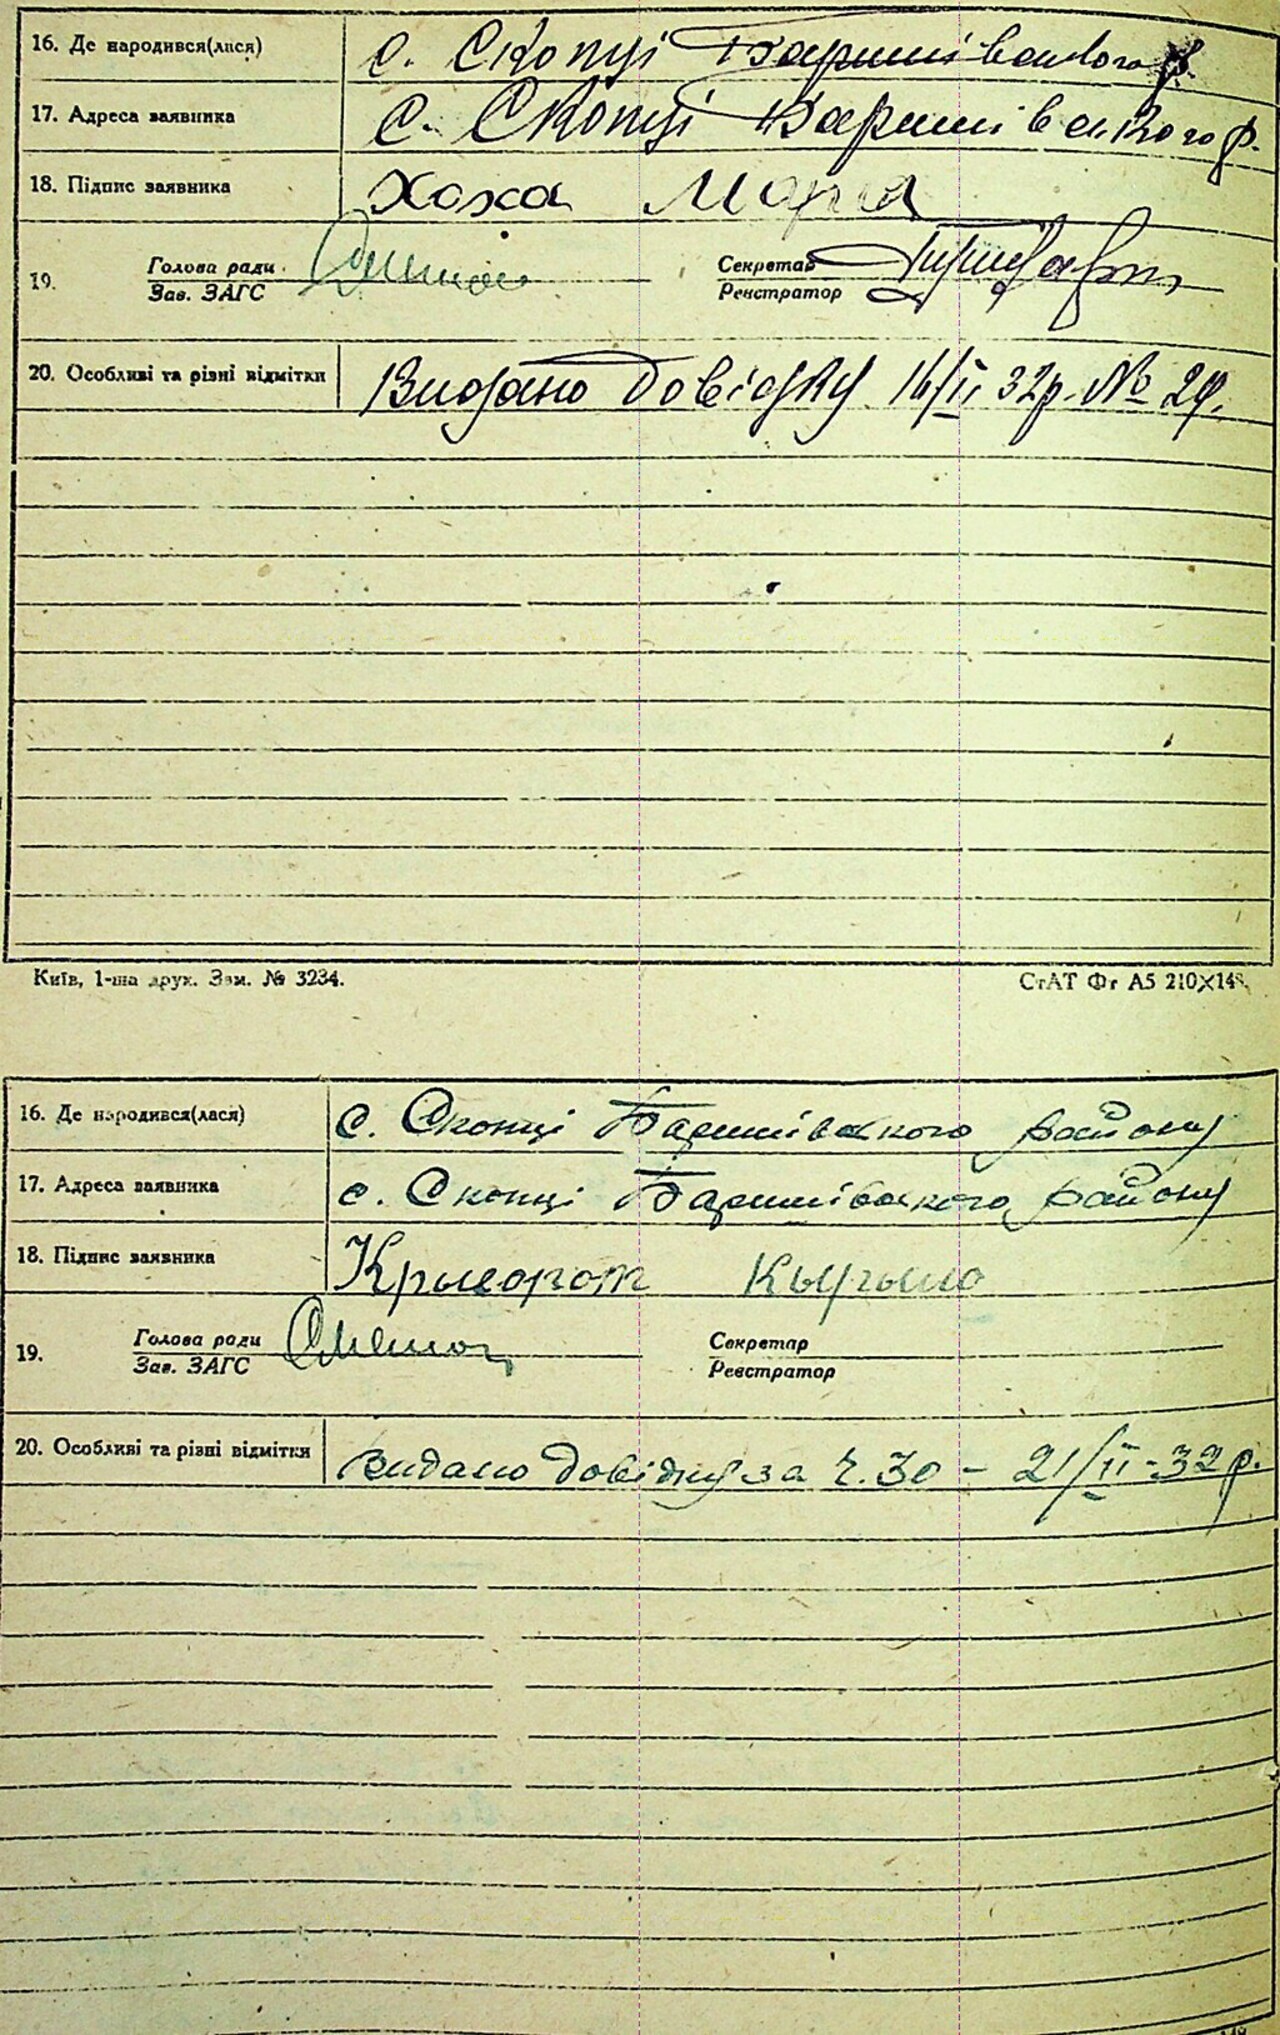 16. Де народився(лася) с. Скопці Баришівського р.
17. Адреса заявника с. Скопці Баришівського р.
18. Підпис заявника Хоха Марfа
19. Голова ради Секретар
Зав. ЗАГС Реєстратор
20. Особливі та різні відмітки Видано довідку 16/II 32р. № 29.
Київ, 1-ша друк. Зам. № 3234. СтАТ Фт А5 210×148
16. Де народився(лася) с. Скопці Баришівського району
17. Адреса заявника с. Скопці Баришівського району
18. Підпис заявника Крыворот Кырыло
19. Голова ради Секретар
Зав. ЗАГС Реєстратор
20. Особливі та різні відмітки видано довідку за ч. 30 – 21/II-32 р.